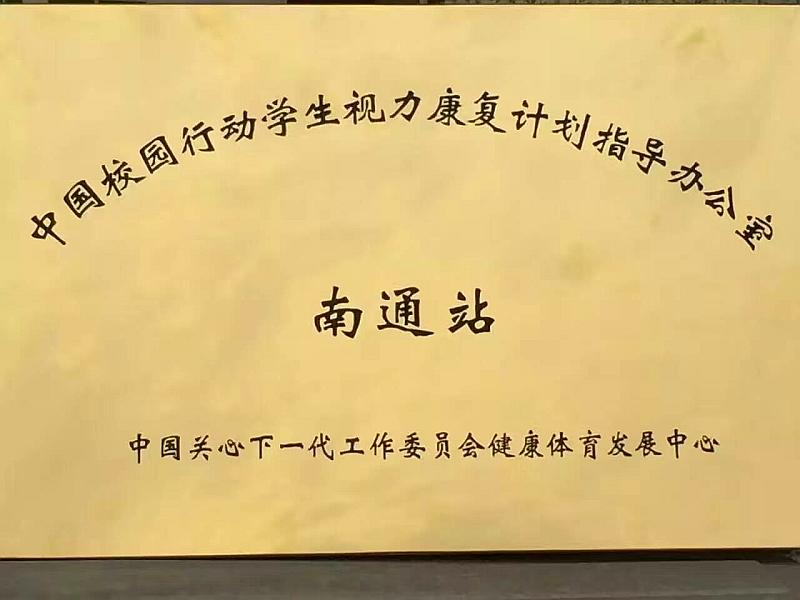 中国校园行动学生视力康复计划指导办公室
南通站
中国关心下一代工作委员会健康体育发展中心